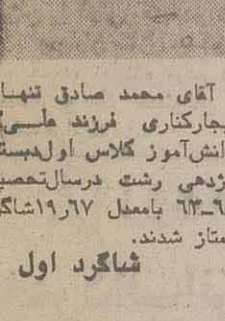 آقای محمد صادق تنها
یجارکناری فرزند علـی
انش‌آموز کلاس اول‌دبستا
ژدهی رشت درسال‌تحصی
۶ـ۶۳ بامعدل ۶۷ر۱۹شاگر
متاز شدند.
شاگرد اول